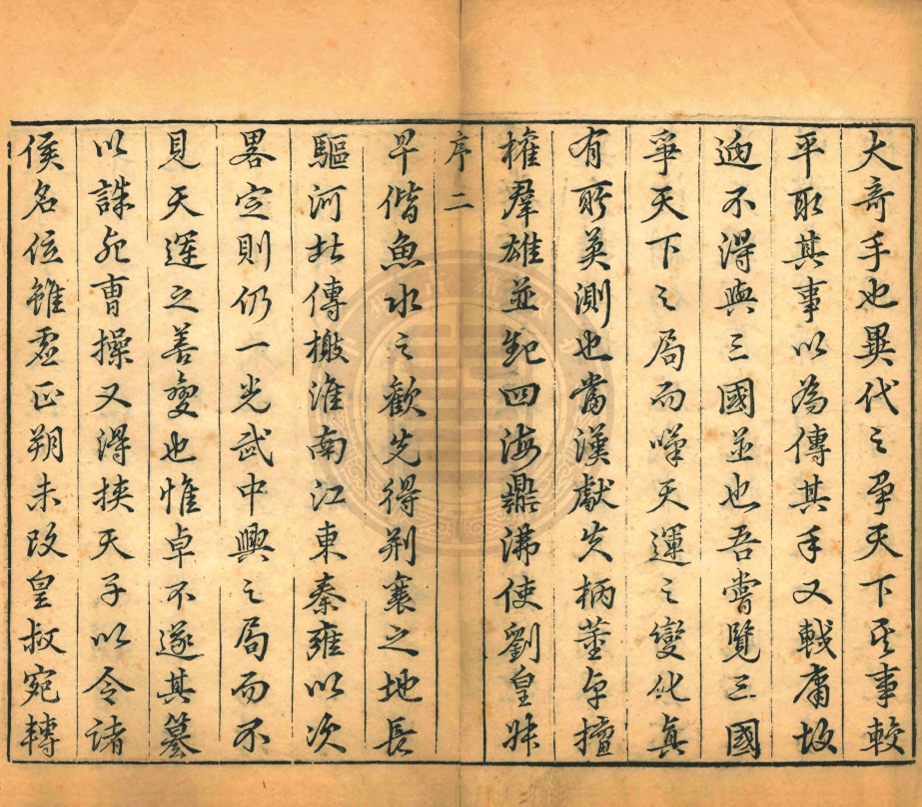 大奇手也異代之爭天下其事較
平取其事以為傳其手又戟庸故
迹不得與三國並也吾嘗覽三國
爭天下之局而嘆天運之變化真
有所莫測也當漢獻失柄董卓擅
權羣雄並起四海鼎沸使劉皇叔
序 二
早偕魚水之歡先得荆襄之地長
驅河北傳檄淮南江東秦雍以次
畧定則仍一光武中興之局而不
見天運之善變也惟卓不遂其篡
以誅死曹操又得挾天子以令諸
侯名位雖虛正朔未改皇叔宛轉